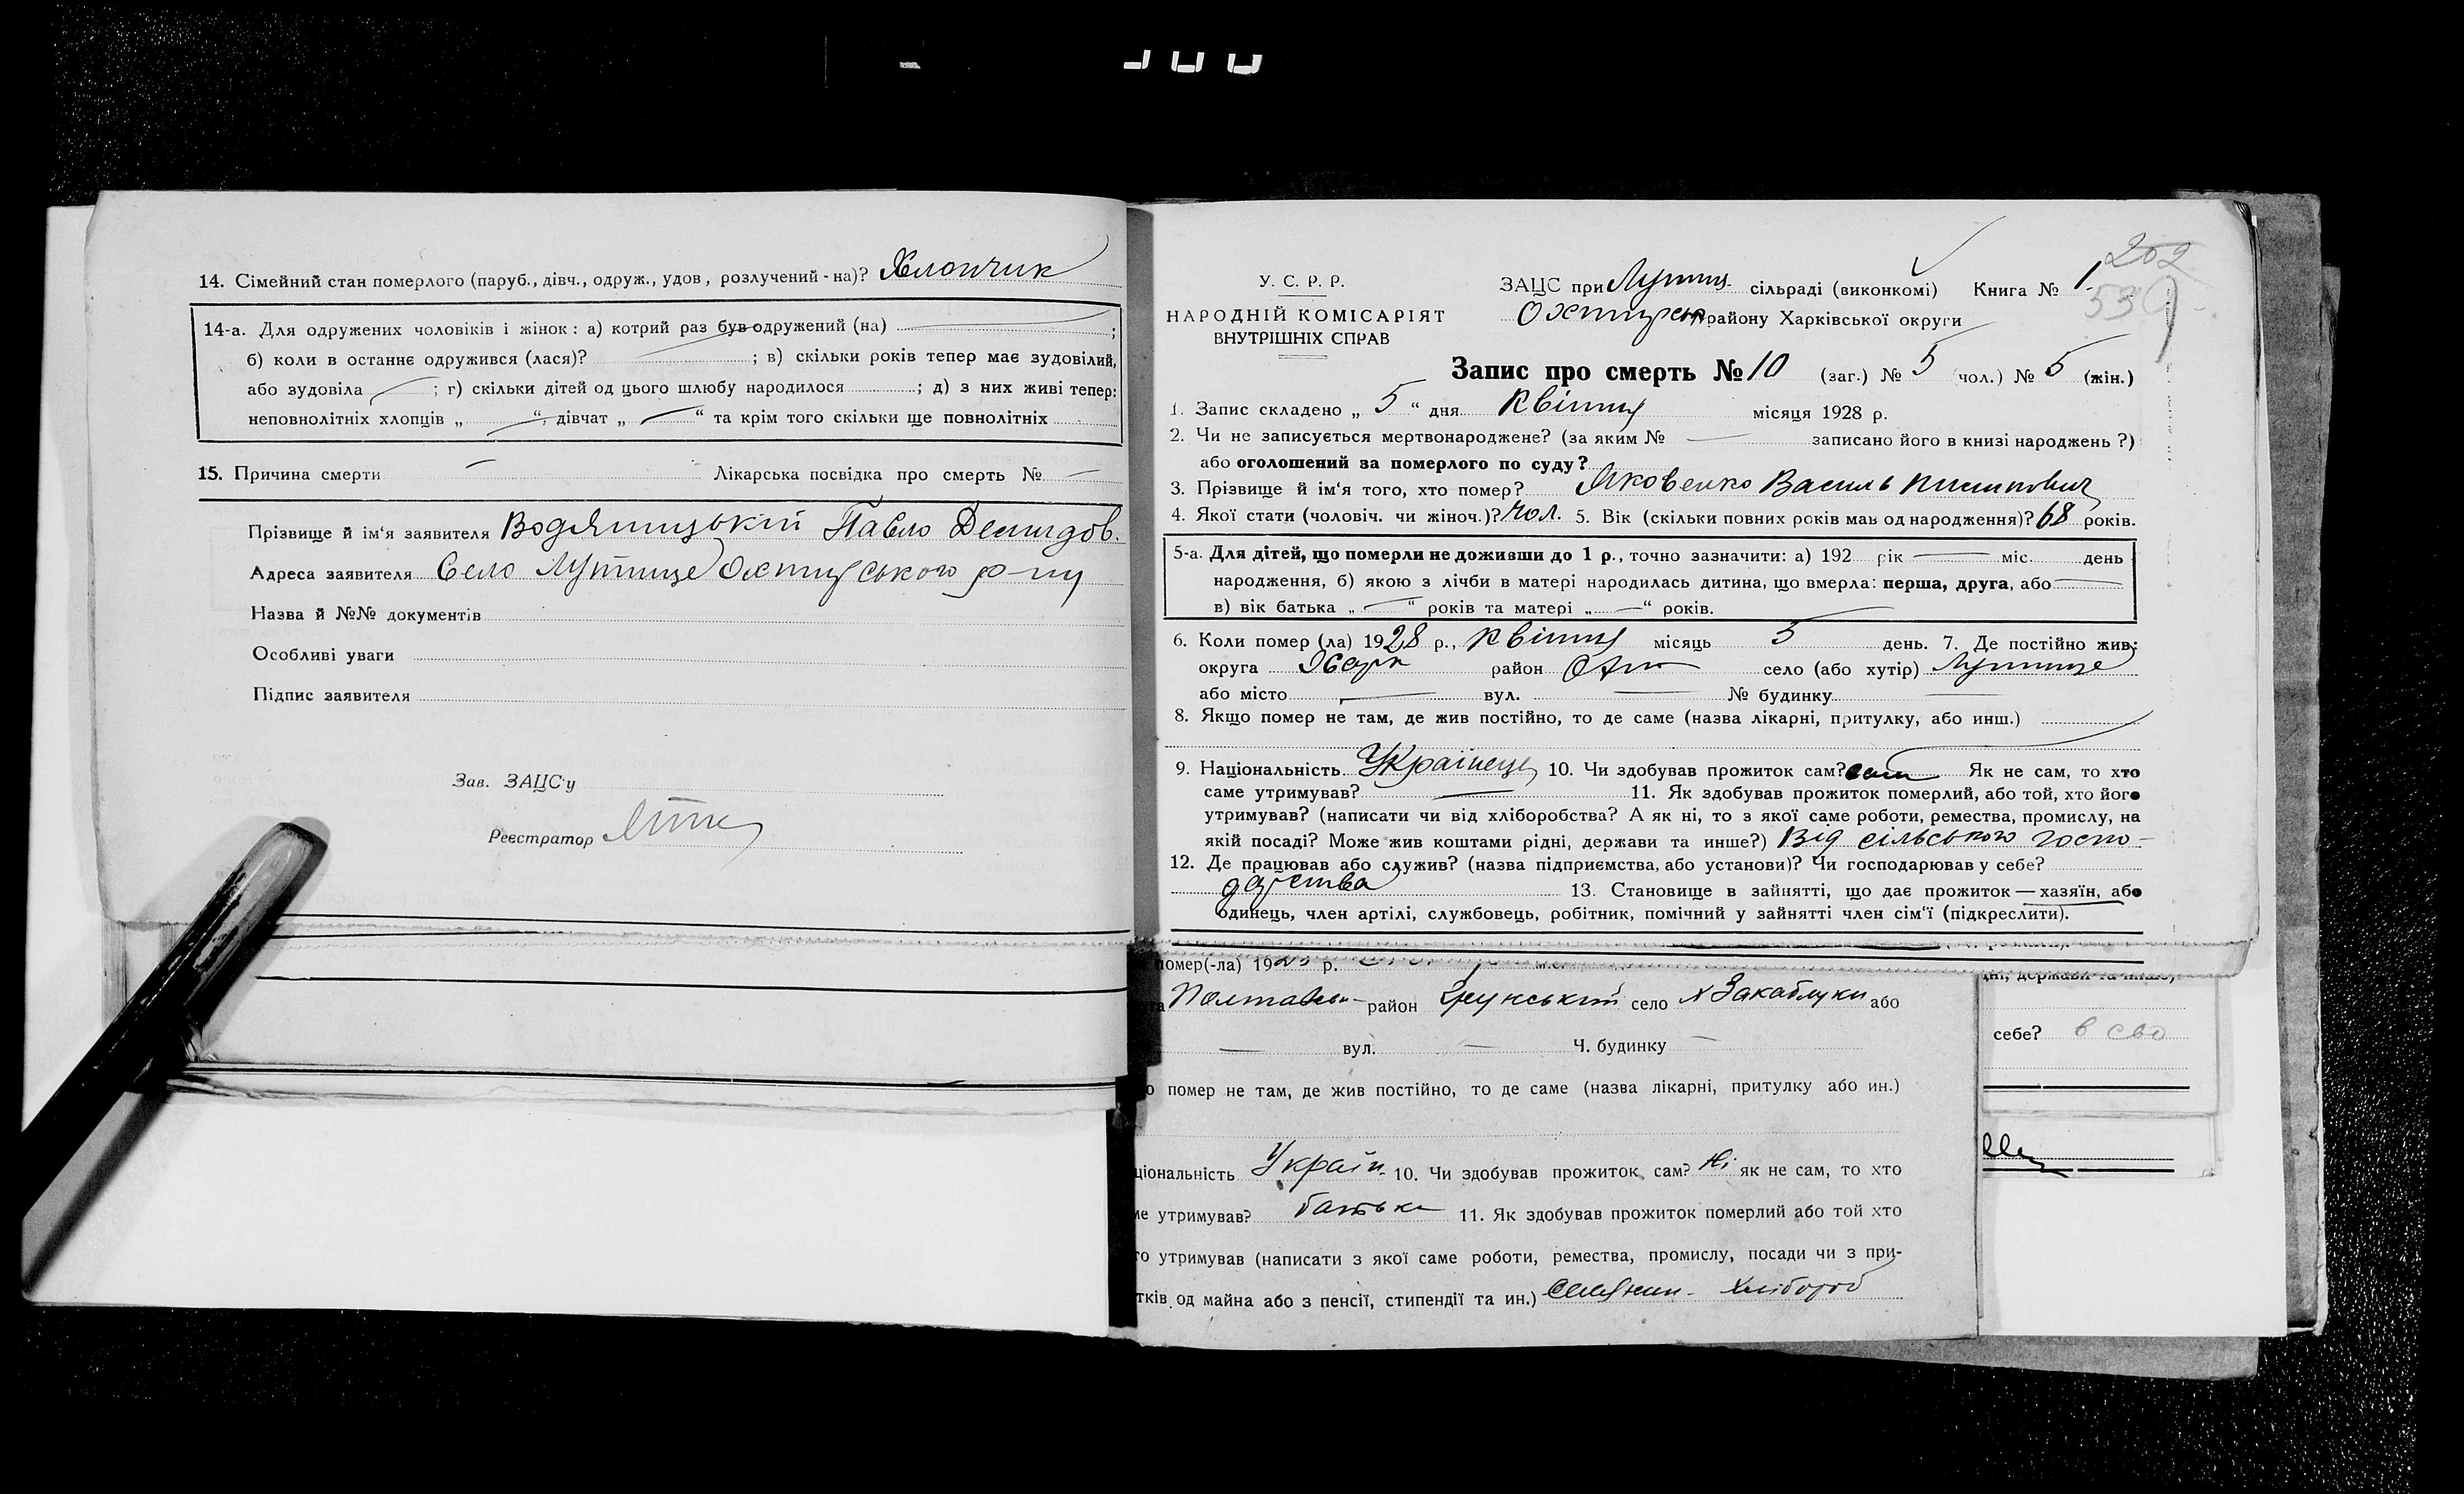 14. Сімейний стан померлого (паруб., дівч., одруж., удов, розлучений-на)? Хлопчик
14-а. Для одружених чоловіків і жінок: а) котрий раз був одружений (на) ;
б) коли в останнє одружився (лася)? ; в) скільки років тепер має зудовілий,
або зудовіла ; г) скільки дітей од цього шлюбу народилося ; д) з них живі тепер:
неповнолітніх хлопців „ “, дівчат „ “ та крім того скільки ще повнолітніх
15. Причина смерти — Лікарська посвідка про смерть № —
Прізвище й ім'я заявителя Водяницький Павло Демидов.
Адреса заявителя Село Лутище Охтирського р-ну
Назва й №№ документів
Особливі уваги
Підпис заявителя
Зав. ЗАЦС'у
Реєстратор
202
У. С. Р. Р.
НАРОДНІЙ КОМІСАРІЯТ
ВНУТРІШНІХ СПРАВ
ЗАЦС при Лутищ. сільраді (виконкомі) Книга № 1
Охтирськ району Харківської округи
53
Запис про смерть № 10 (заг.) № 5 чол.) № 5 (жін.)
1. Запис складено „ 5 “ дня Квітня місяця 1928 р.
2. Чи не записується мертвонароджене? (за яким № — записано його в книзі народжень ?)
або оголошений за померлого по суду?
3. Прізвище й ім'я того, хто помер? Яковенко Василь
4. Якої стати (чоловіч. чи жіноч.)? Чол. 5. Вік (скільки повних років мав од народження)? 68 років.
5-а. Для дітей, що померли не доживши до 1 р., точно зазначити: а) 192 рік — міс. день
народження, б) якою з лічби в матері народилась дитина, що вмерла: перша, друга, або —
в) вік батька „ — “ років та матері „ — “ років.
6. Коли помер (ла) 1928 р., Квітня місяць 5 день. 7. Де постійно жив:
округа Харк район Охт село (або хутір) Лутище
або місто — вул. — № будинку —
8. Якщо помер не там, де жив постійно, то де саме (назва лікарні, притулку, або инш.)
9. Національність Українець 10. Чи здобував прожиток сам? сам Як не сам, то хто
саме утримував? — 11. Як здобував прожиток померлий, або той, хто його
утримував? (написати чи від хліборобства? А як ні, то з якої саме роботи, ремества, промислу, на
якій посаді? Може жив коштами рідні, держави та инше?) Від сільського госпо-
12. Де працював або служив? (назва підприємства, або установи)? Чи господарював у себе?
дарства 13. Становище в зайнятті, що дає прожиток — хазяїн, або
одинець, член артілі, службовець, робітник, помічний у зайнятті член сім'ї (підкреслити).
помер(-ла) 19 р.
район село х Закаблуки або
— вул. — Ч. будинку —
помер не там, де жив постійно, то де саме (назва лікарні, притулку або ин.)
ціональність Україн. 10. Чи здобував прожиток сам? Ні як не сам, то хто
ме утримував? батьки 11. Як здобував прожиток померлий або той хто
го утримував (написати з якої саме роботи, ремества, промислу, посади чи з при-
тків од майна або з пенсії, стипендії та ин.) Селянин - хлібороб
себе? в сво